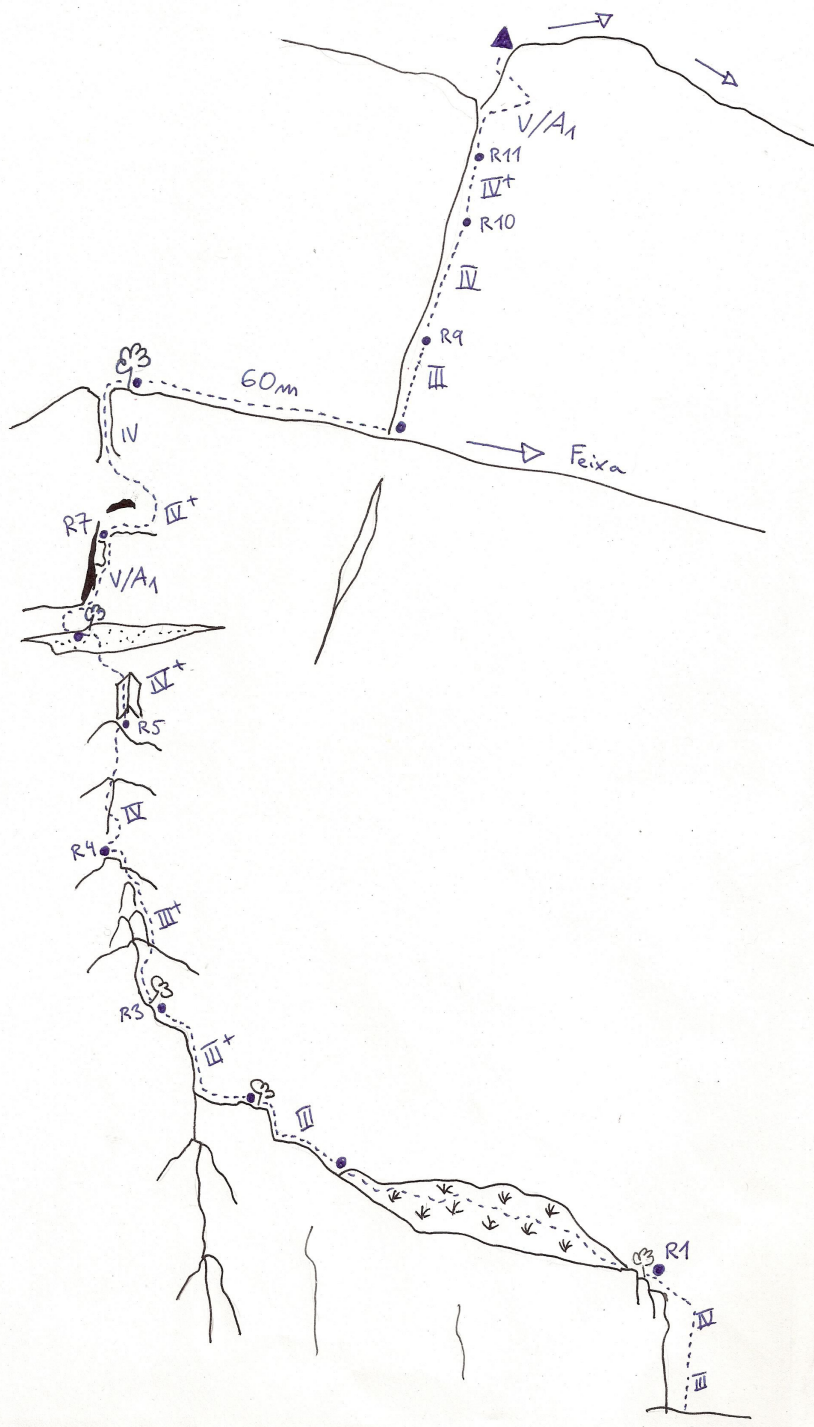 V/A1
R11
IV+
R10
IV
R9
III
60m
IV
Feixa
IV+
R7
V/A1
IV+
R5
IV
R4
III+
R3
III+
III
R1
IV
III